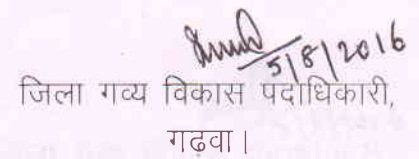 5/8/2016
जिला गव्य विकास पदाधिकारी,
गढ़वा।